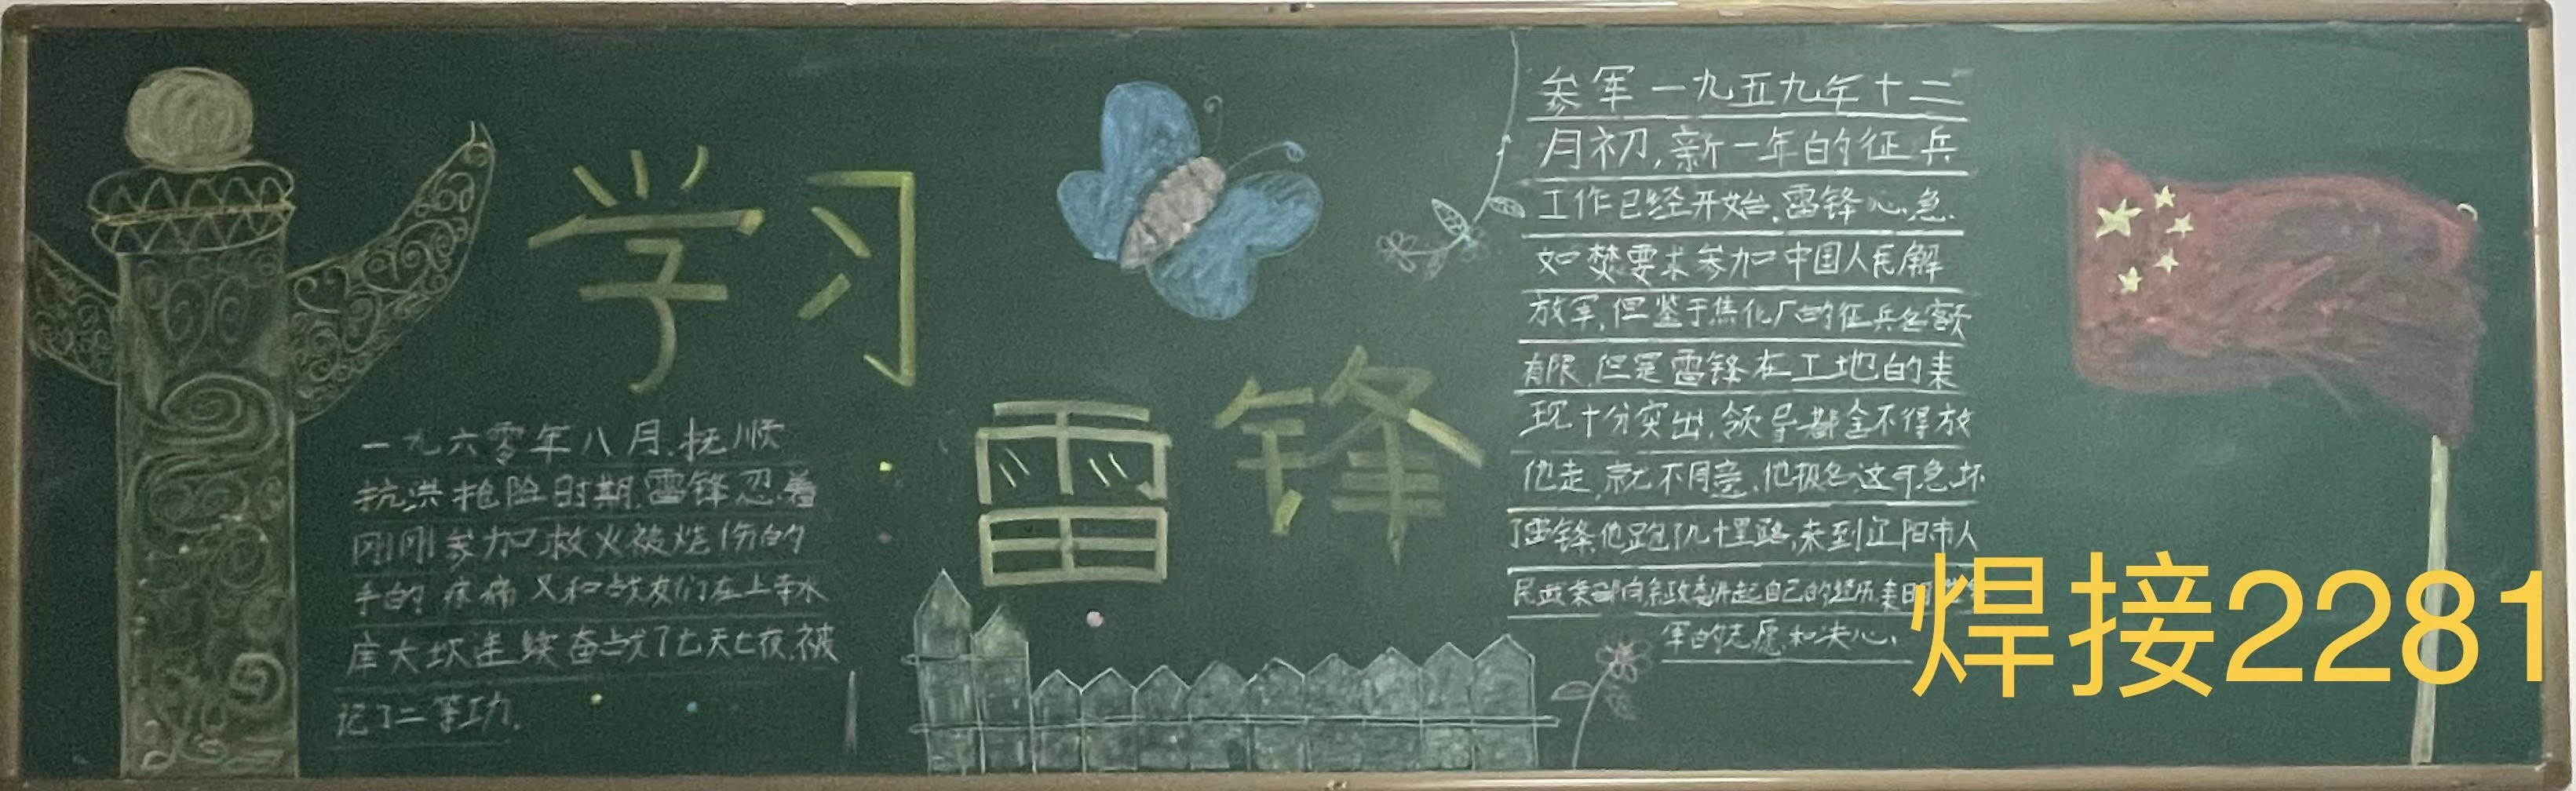 学习
雷锋
一九六零年八月,抚顺
抗洪抢险时期,雷锋忍着
刚刚参加救火被烧伤的
手的疼痛又和战友们在上寺水
库大坝连续奋战了七天七夜,被
记了二等功.
参军一九五九年十二
月初,新一年的征兵
工作已经开始,雷锋心急
如焚要求参加中国人民解
放军,但鉴于焦化厂的征兵名额
有限,但是雷锋在工地的表
现十分突出,领导都舍不得放
他走,就不同意,他报名这可急坏
了雷锋,他跑了几十里路,来到辽阳市人
民武装部向余政委讲起自己的经历表明
军的志愿和决心,
焊接2281